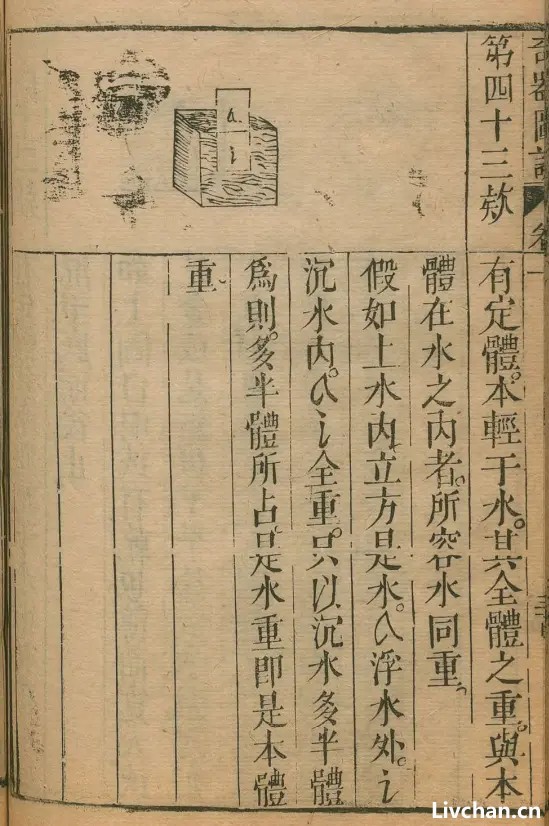 奇器圖說 卷一
第四十三欵
有定體。本輕于水。其全體之重。與本
體在水之內者。所容水同重。
假如上水內立方是水。a浮水外。i
沉水內。a i全重。只以沉水多半體
爲則。多半體所占是水重即是本體
重
a
i
Livchan.cn